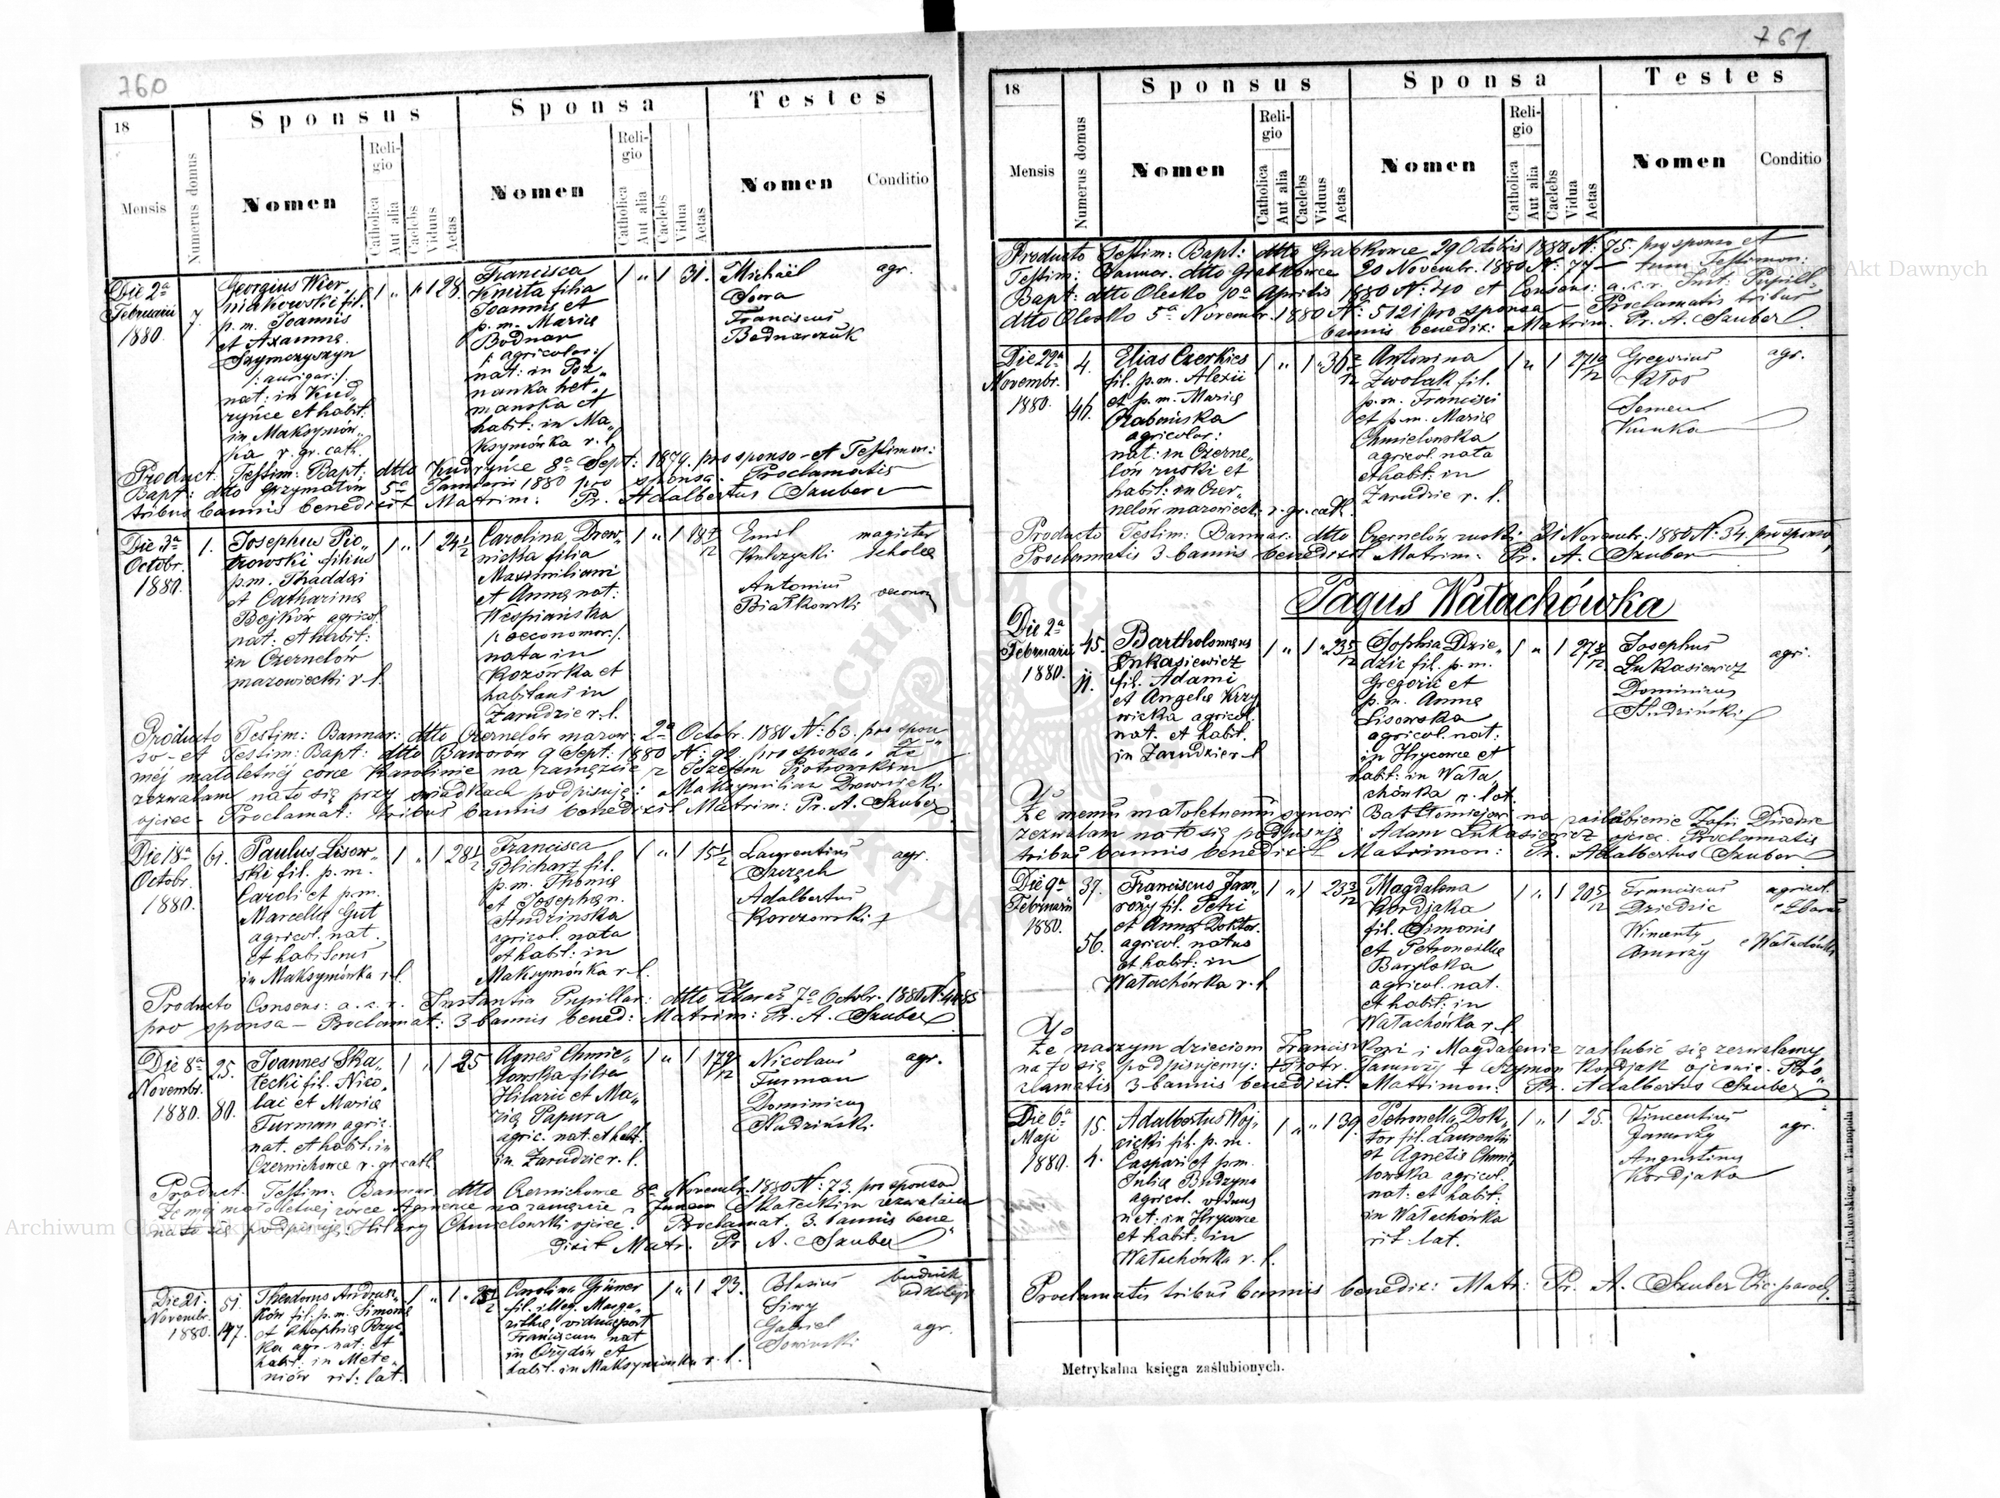 760
18
Sponsus
Sponsa
Testes
Mensis
Numerus domus
Nomen
Religio
Catholica
Aut alia
Caelebs
Viduus
Aetas
Nomen
Religio
Catholica
Aut alia
Caelebs
Vidua
Aetas
Nomen
Conditio
Die 2a
Februarii
1880
7.
Georgius Wier,,
niakowski fil.
p. m. Joannis
et Axanna
Szymczyszyn
/: aurigar :/
nat: in Kud,
ryńce et habit:
in Maksymów,
ka r. gr. cath.
1 " 1 28.
Francisca
Kmita filia
Joannis et
p. m. Mariae
Bodnar
/: agricolar :/
nat: in Poz,
nanka het,
mańska et
habit: in Ma,
ksymówka r. l.
1 " 1 31.
Michaël
Sowa
Franciscus
Bodnarczuk
agr.
Product. Testim: Bapt: dtto Kudryńce 8a Sept: 1879. pro sponso - et Testimon:
Bapt: dtto Grzymałów 5a Januarii 1880 pro sponsa. Proclamatis
tribus bannis benedixit Matrim: Pr. Adalbertus Szuber
Die 3a
Octobr.
1880.
1.
Josephus Pio,
trowski filius
p. m. Thaddaei
et Catharina
Bojków agricol.
nat: et habit:
in Czernelów
mazowiecki r. l.
1 " 1 24 1/2
Carolina Drew,
nicka filia
Maximiliani
et Anna nat:
Wespiańska
/: oeconomor :/
nata in
Kozówka et
habitans in
Zarudzie r. l.
1 " 1
Emil
Kulczycki
Antonius
Białkowski
magister
scholae
oeconom
Producto Testim: Bannar: dtto Czernelów mazow: 2a Octobr. 1880 N: 63. pro spon
so - et Testim: Bapt: dtto Baworów 9 Sept: 1880 N: 92. pro sponsa. Że
mej małoletnéj córce Karolinie na zamęzcie z Józefem Piotrowskim
zezwalam na to się przy świadkach podpisuję: Maksymilian Drewnicki
ojciec - Proclamat: tribus bannis benedixit Matrim: Pr. A. Szuber
Die 18a
Octobr.
1880.
61.
Paulus Lisow,
ski fil. p. m.
Caroli et p. m.
Marcella Gut
agricol. nat.
et habitans
in Maksymówka r. l.
1 " 1 28 1/2
Francisca
Blicharz fil.
p. m. Thoma
et Josepha n.
Studzińska
agricol. nata
et habit: in
Maksymówka r. l.
1 " 1 15 1/2
Laurentius
Szczęch
Adalbertus
Korczowski
agr.
Producto Consens: a. c. r. Instantia Pupillar: dtto Zbaraż 7a Octobr. 1880 N: 4485
pro sponsa - Proclamat: 3 bannis bened: Matrim: Pr. A. Szuber
Die 8a
Novembr.
1880.
25.
80.
Joannes Ska,
łecki fil. Nico,
lai et Maria
Furman agric.
nat. et habit. in
Czernichowce r. gr. cath.
1 " 1 25
Agnes Chmie,
lowska filia
Hilarii et Ma,
ria Papura
agric. nat. et habit.
in Zarudzie r. l.
1 " 1 17
Nicolaus
Furman
Dominicus
Studziński
agr.
Product. Testim: Bannar. dtto Czernichowce 8a Novembr. 1880 N: 73. pro sponso
Że mej małoletnej córce Agnence na zamęzcie z Janem Skałeckim zezwalam
na to się podpisuję: Hilary Chmielowski ojciec. Proclamat. 3. bannis bene,
dixit Matr. Pr. A. Szuber
Die 21.
Novembr.
1880.
51.
47.
Theodorus Andrusz,
ków fil. p. m. Simonis
et Sophia
agr. nat: et
habit: in Mete,
niów rit: lat.
1 " 1
Carolina Grüner
fil. illeg. Marga,
ritha vidua post
Franciscum nat
in Ożydów et
habit. in Maksymówka r. l.
1 " 1 23.
Blasius
Siwy
Gabriel
Sowiński
budnik
od kolej
agr.
761.
18
Sponsus
Sponsa
Testes
Mensis
Numerus domus
Nomen
Religio
Catholica
Aut alia
Caelebs
Viduus
Aetas
Nomen
Religio
Catholica
Aut alia
Caelebs
Vidua
Aetas
Nomen
Conditio
Producto Testim: Bapt: dtto Grabkowce 29 Octobris 1880 N: 75. pro sponso et
Testim: Bannar. dtto Grabkowce 20 Novembr. 1880 N: 77 - tum Testimon:
Bapt: dtto Olesko 10a Aprilis 1880 N: 40 et Consens: a. c. r. Inst: Pupill:
dtto Olesko 5a Novembr. 1880 N: 5121 pro sponsa - Proclamatis tribus
bannis benedix: Matrim. Pr. A. Szuber
Die 29a
Novembr.
1880.
4.
46.
Elias Czerkies
fil. p. m. Alexii
et p. m. Maria
Grabańska
agricolar:
nat: in Czerne,
lów ruski et
habit: in Czer,
nelów mazowieck. r. gr. cath.
1 " 1
Antonina
Zwolak fil.
p. m. Francisci
et p. m. Maria
Chmielowska
agricol. nata
et habit: in
Zarudzie r. l.
1 " 1 27
Gregorius
Semen
Kunka
agr.
Producto Testim: Bannar: dtto Czernelów ruski: 21 Novembr: 1880 N: 34. pro sponso,
Proclamatis 3 bannis benedixit Matrim: Pr. A. Szuber
Pagus Wałachówka
Die 2a
Februarii
1880.
45.
11.
Bartholomaeus
Łukasiewicz
fil. Adami
et Angela Krzy
wicka agricol.
nat. et habit.
in Zarudzie r. l.
1 " 1 23 5/12
Sophia Dzie,
dzic fil. p. m.
Gregorii et
p. m. Anna
Lisowska
agricol. nat:
in Hrycowce et
habit: in Wała,
chówka r. lat.
1 " 1 27
Josephus
Łukasiewicz
Dominicus
Studziński
agri.
Że memu małoletnemu synowi Bartłomiejowi na zaślubienie Zofii Dziedzic
zezwalam na to się podpisuję: Adam Łukasiewicz ojciec. Proclamatis
tribus bannis benedixit Matrimon: Pr. Adalbertus Szuber
Die 9a
Februarii
1880.
37.
56.
Franciscus Jam,
roży fil. Petri
et Anna Doktor.
agricol. natus
et habit: in
Wałachówka r. l.
1 " 1 23 3/12
Magdalena
Kordjaka
fil. Simonis
et Petronella
Baryloka
agricol. nat.
et habit: in
Wałachówka r. l.
1 " 1 20 5/12
Franciscus
Dziedzic
Wincenty
Jamroży
agricol.
z Zbaraż
z Wałachówki
Że naszym dzieciom Franciszkowi i Magdalenie zaślubić się zezwalamy
na to się podpisujemy: + Piotr Jamroży + Szymon Kordjak ojcowie. Pro,
clamatis 3 bannis benedixit. Matrimon: Pr. Adalbertus Szuber
Die 6a
Maji
1880.
15.
4.
Adalbertus Woj,
cicki fil. p. m.
Caspari et p. m.
Julia Budzyna
agricol. viduus
nat: in Hrycowce
et habit: in
Wałachówka r. l.
1 " " 1 39.
Petronella Dok,
tor fil. Laurentii
et Agnetis Chmie,
lowska agricol.
nat: et habit:
in Wałachówka
rit. lat.
1 " 1 25.
Vincentius
Jamroży
Augustinus
Kordjaka
agr.
Proclamatis tribus bannis benedix: Matr: Pr. A. Szuber Vic: paroch.
Metrykalna księga zaślubionych.
Drukiem J. Pawłowskiego w Tarnopolu
Archiwum Główne Akt Dawnych